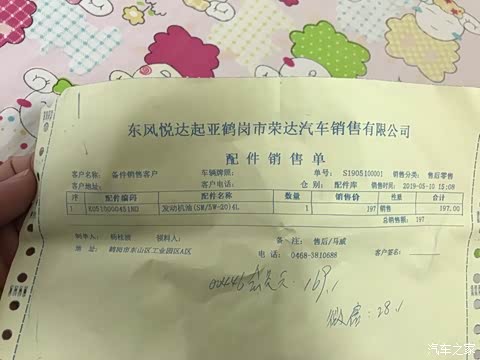 东风悦达起亚鹤岗市荣达汽车销售有限公司
配件销售单
客户名称: 备件销售客户 车辆牌照: 单号: S1905100001 销售分类: 售后零售
客户地址: 客户电话: 仓别: 配件库 销售时间: 2019-05-10 15:08
序 配件编码 配件名称 数量 销售价 性质 合计
1 K0510000451N0 发动机油(SM/5W-20)4L 1 197 销售 197.00
总销售额: 197
制单人: 杨桂 领料人: 备注: 售后/马威
地址: 鹤岗市东山区工业园区A区 电话: 0468-3810688 客户签名:
00446 169.1
微信: 28.1
汽车之家